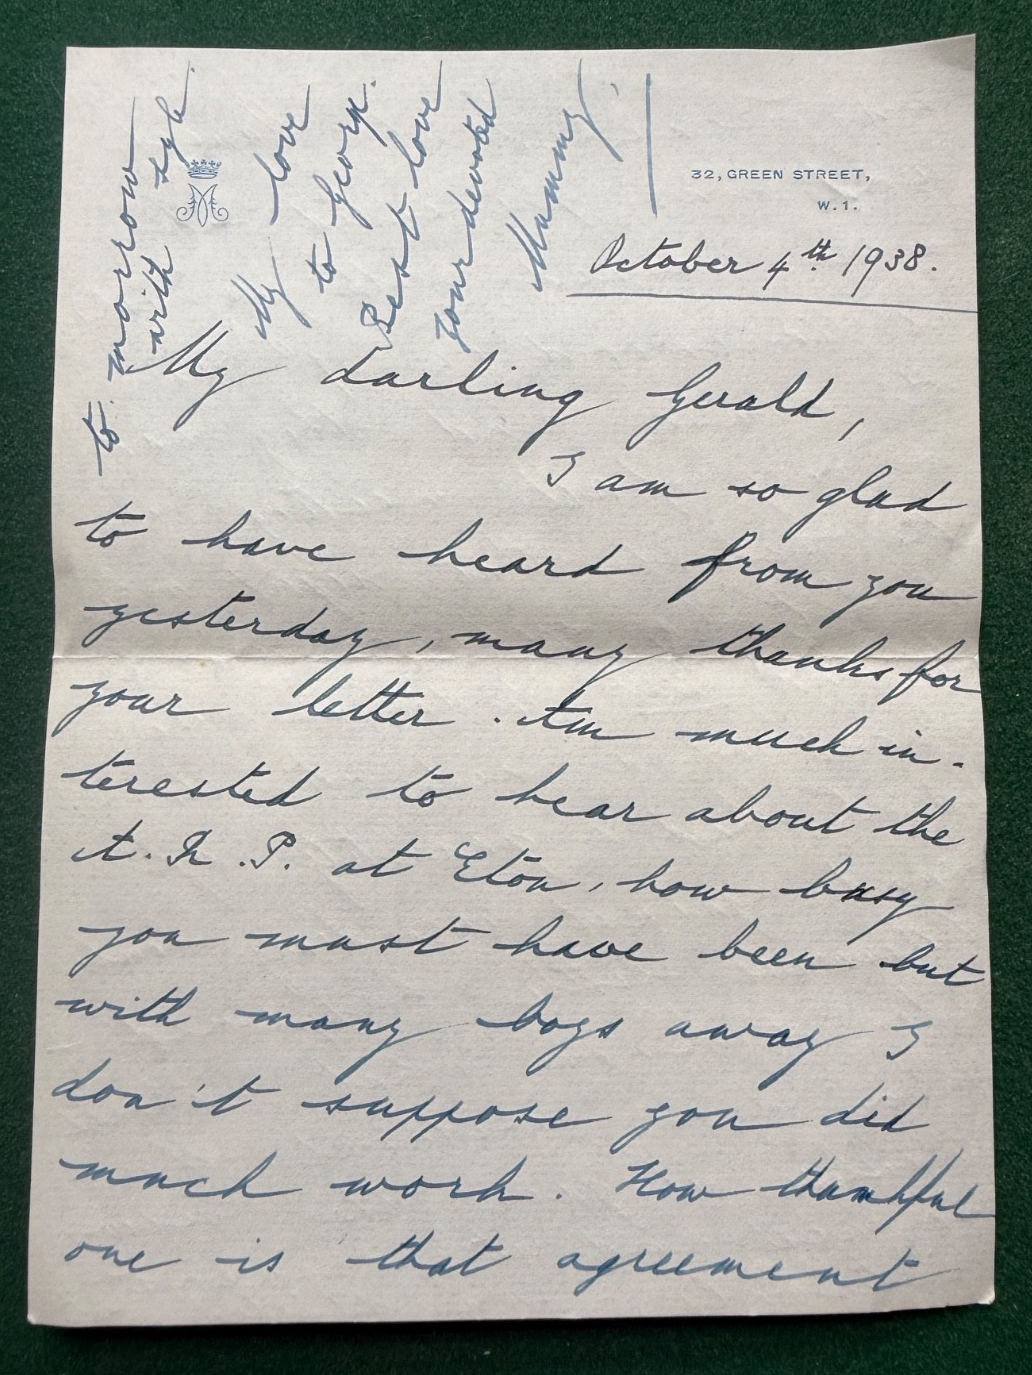 32, GREEN STREET,
W.1.
October 4th 1938.
My darling Gerald,
I am so glad
to have heard from you
yesterday, many thanks for
your letter. Am much in-
terested to hear about the
A.R.P. at Eton, how busy
you must have been but
with many boys away I
don't suppose you did
much work. How thankful
one is that agreement
to morrow
with
My love
to Georg.
Best love
your devoted
Mummy.